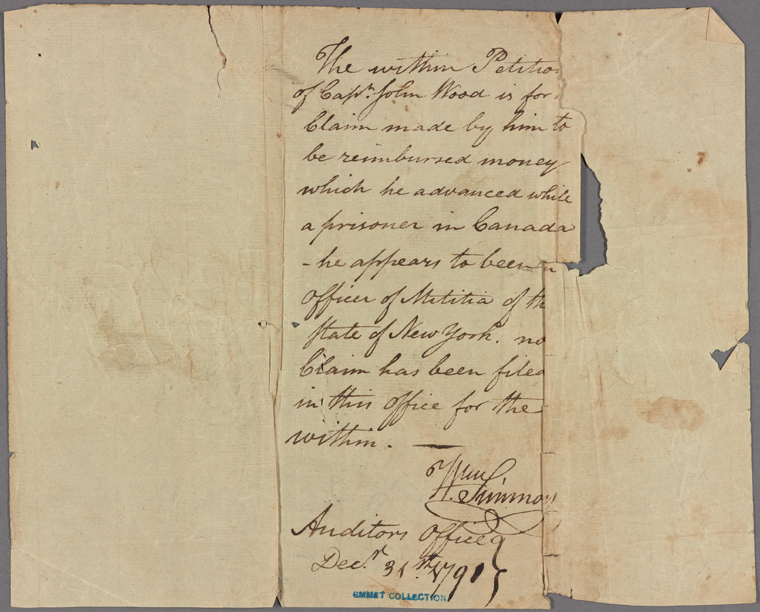 The within Petitio
of Capn. John Wood is for
Claim made by him to
be reimbursed money
which he advanced while
a prisoner in Canada
- he appears to been
officer of Militia of th
State of New York. no
Claim has been filed
in this office for the
within. —
Wm
Simmon
Auditors Office
Decr. 31st 1791
EMMET COLLECTION